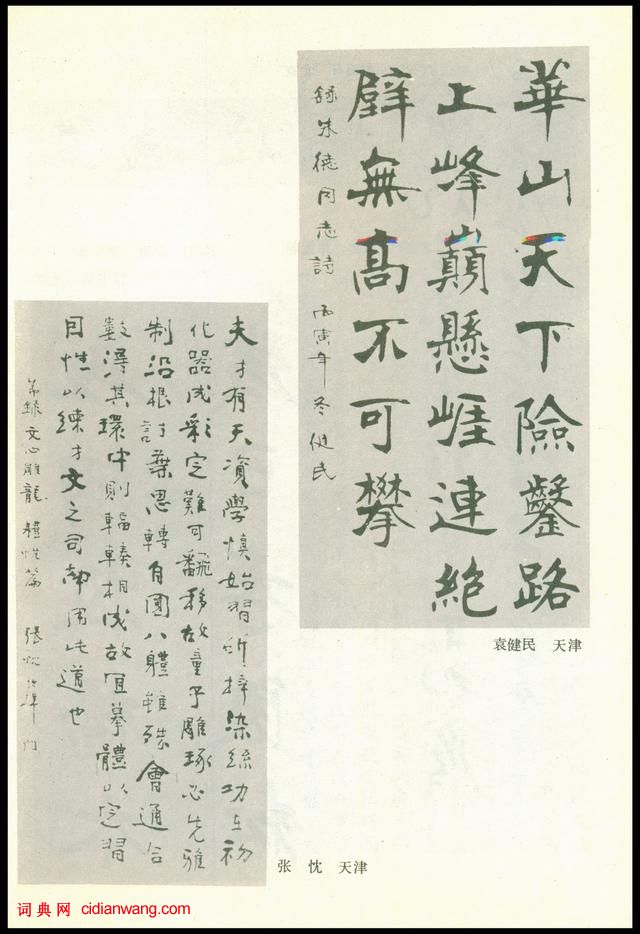 華山天下險鑿路
上峰巔懸崕連絕
壁無髙不可攀
錄朱德同志詩 丙寅年冬 健民
袁健民 天津
夫才有天資學慎始習斫梓染絲功在初
化器成彩定難可翻移故童子雕琢必先雅
制沿根討葉思轉自圓八體雖殊會通合
數得其環中則輻輳相成故宜摹體以定習
因性以練才文之司南用此道也
節錄文心雕龍體性篇 張忱於津門
张 忱 天津
词典网 cidianwang.com